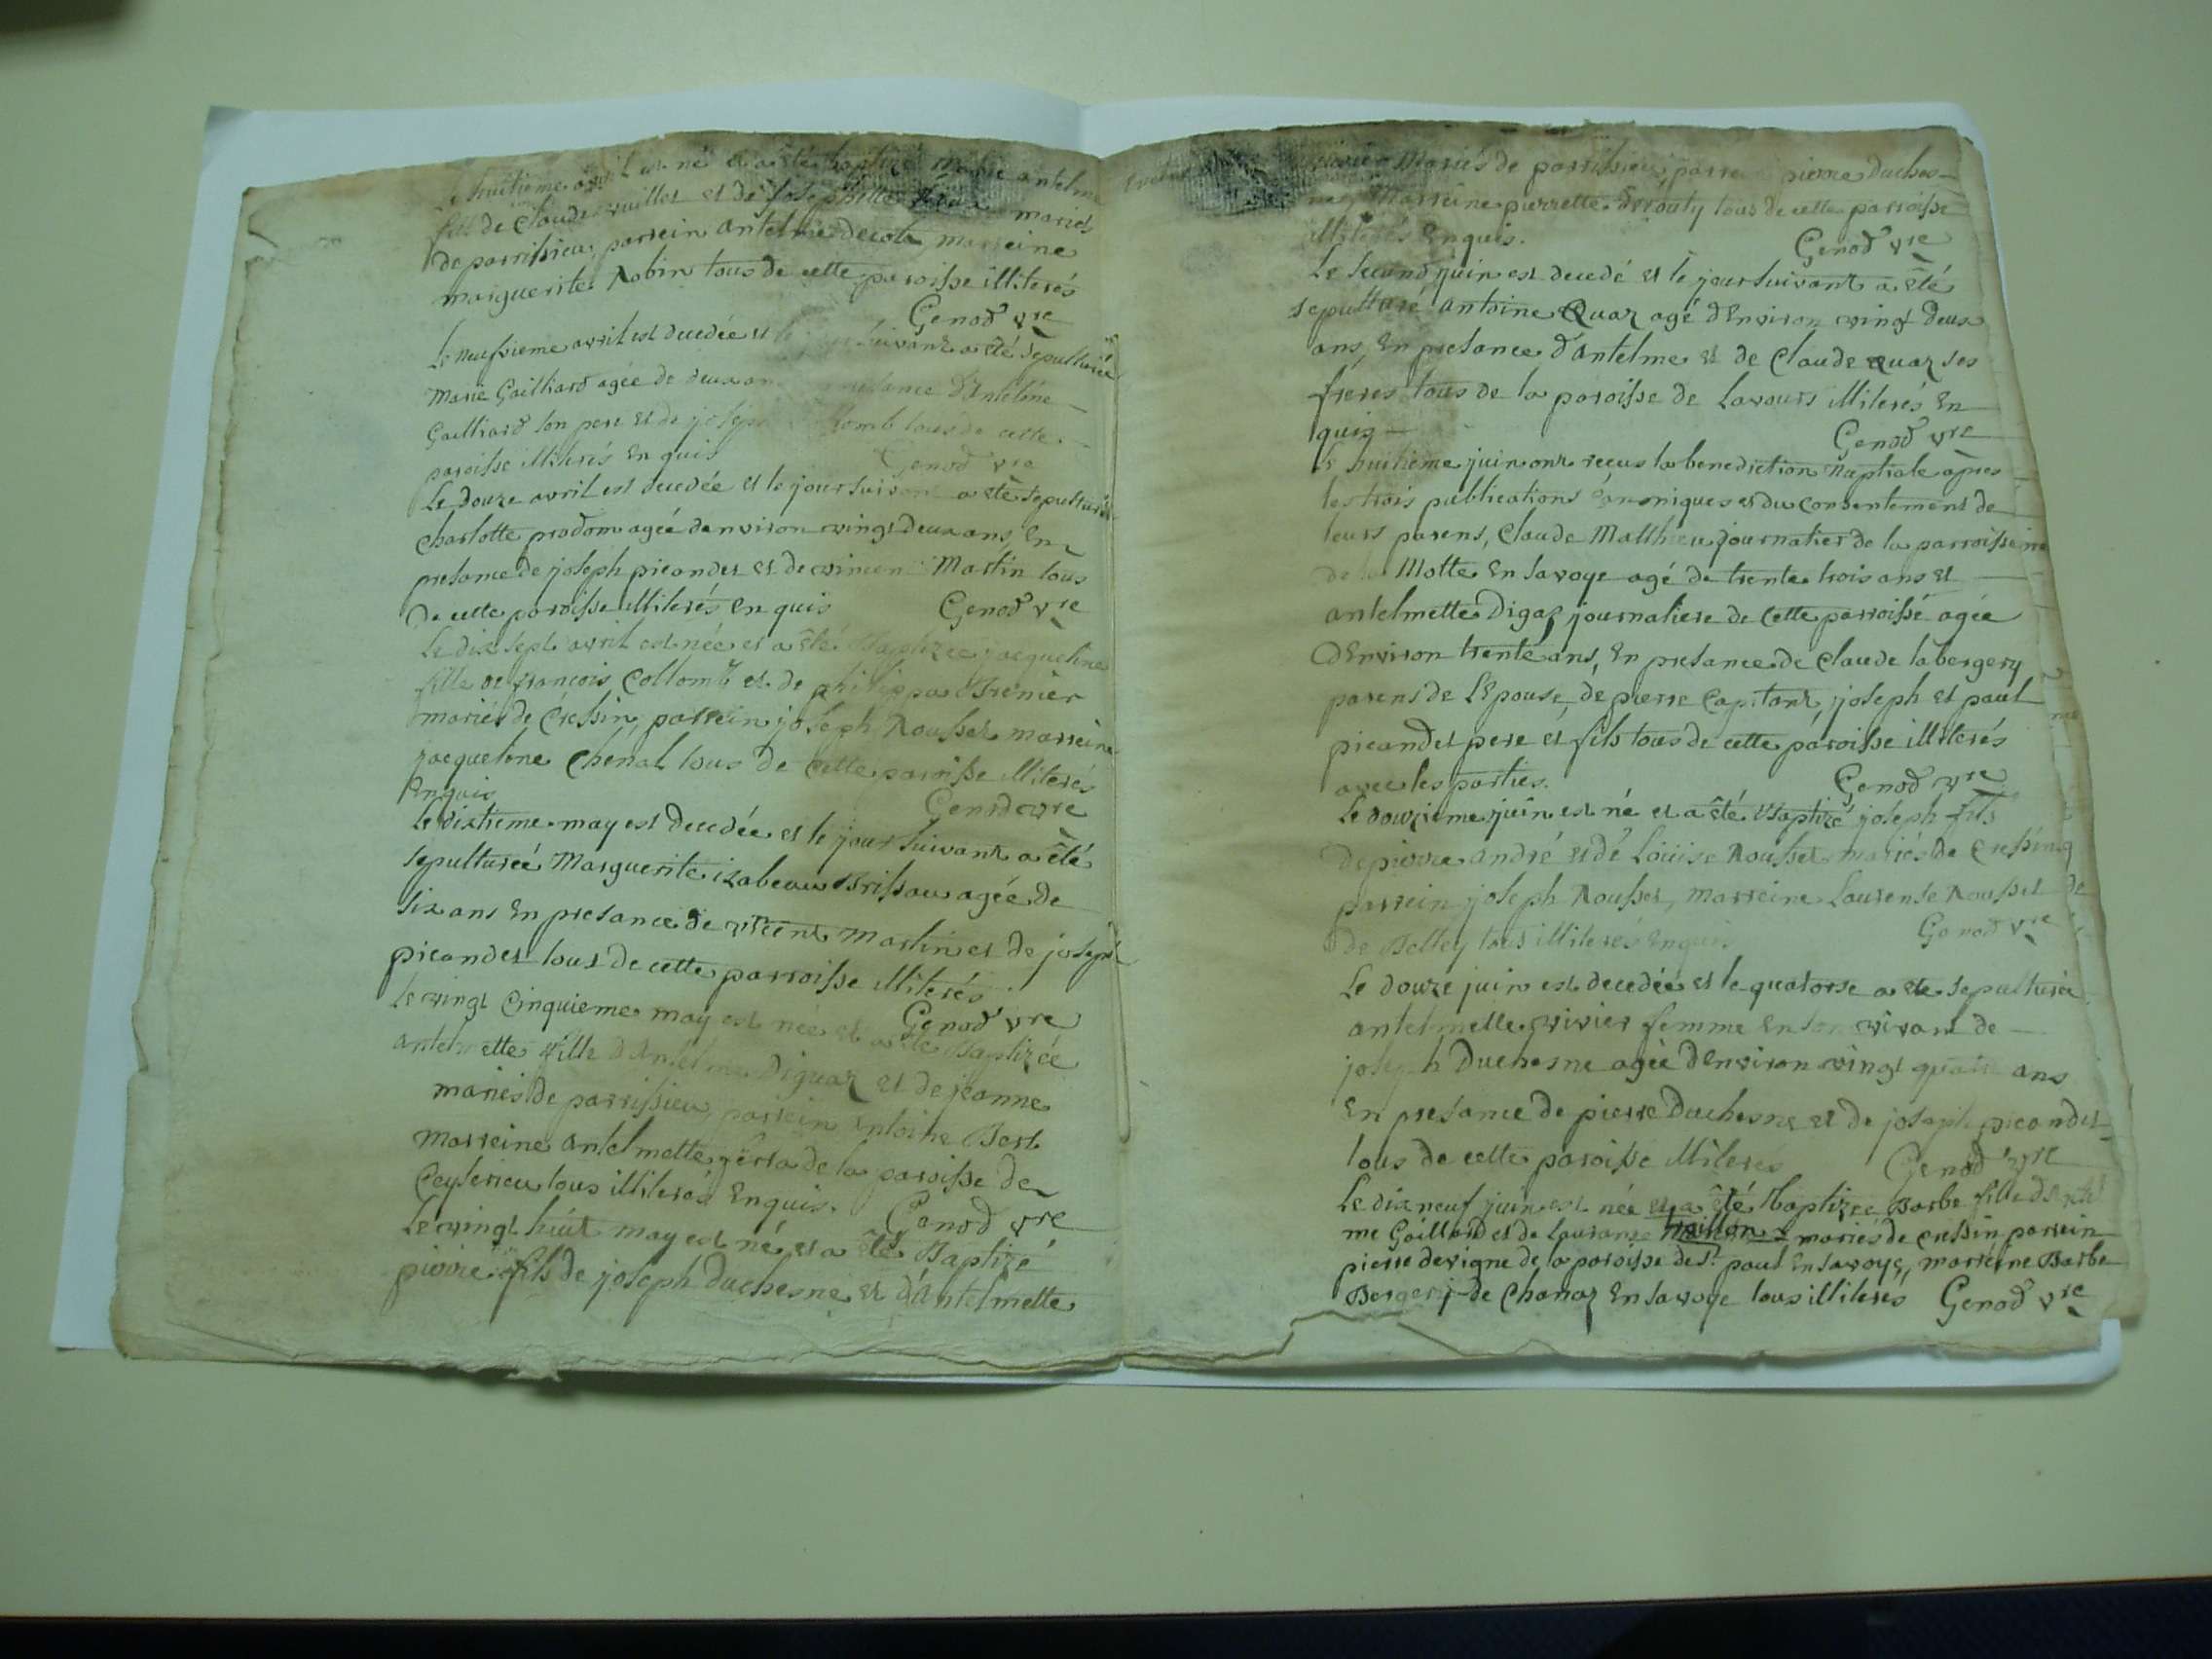 Le huitieme avril est né et a été baptizé antelme
fils de Claude et de Josephette mariés
de parrissieu, parrein antelme marreine
marguerite Robin tous de cette paroisse illiterés
Genod vre
Le neufvieme avril est decedée et le jour suivant a été sepulturée
Marie Gailliard agée de deux ans presance d'Antelme
Gailliard son pere et de joseph Collomb tous de cette
paroisse illiterés Enquis
Genod vre
Le douze avril est decedée et le jour suivant a été sepulturée
Charlotte prodom agée denviron vingt deux ans, En
presance de joseph picandet et de vincent Martin tous
de cette paroisse illiterés Enquis Genod vre
Le dix sept avril est née et a été Baptizée jacqueline
fille de françois Collomb et de philippa Grenier
mariés de Cressin, parrein joseph Rousset marreine
jacqueline Chenal tous de cette paroisse illiterés
Enquis
Genod vre
Le dixieme may est decedée et le jour suivant a été
sepulturée Marguerite izabeau Brissau agée de
six ans En presance de vincent Martin et de joseph
picandet tous de cette parroisse illiterés
Genod vre
Le vingt Cinquieme may est née et a été Baptizée
antelmette fille d'Antelme Diguaz et de jeanne
mariés de parrissieu, parrein antoine Bert
Marreine antelmette de la paroisse de
Ceyserieu tous illiterés Enquis. Genod vre
Le vingt huit may est né et a été Baptizé
pierre fils de joseph Duchesne et d'Antelmette
vivier Mariés de parrissieu, parrein pierre Duches-
ne, Marreine pierrette tous de cette parroisse
illiterés Enquis.
Genod vre
Le second juin est decedé et le jour suivant a été
sepulturé antoine Quaz agé d'Environ vingt deux
ans, En presance d'Antelme et de Claude Quaz ses
freres tous de la paroisse de Lavours illiterés En
quis
Genod vre
Le huitieme juin ont recus la benediction Nuptiale apres
les trois publications canoniques et du consentement de
leurs parens, Claude Matthieu journalier de la parroisse
de la Motte En Savoye agé de trente trois ans et
antelmette Digaz journaliere de Cette parroisse agée
d'Environ trente ans, En presance de Claude labergery
parens de L'Epouse, de pierre Capitant, joseph et paul
picandet pere et fils tous de cette paroisse illiterés
avec les parties.
Genod vre
Le douzieme juin est né et a été Baptizé joseph fils
de pierre andré et de Loüise Rousset mariés de Cressin
parrein joseph Rousset, Marreine Laurense Rousset
de Belley tous illiterés Enquis
Genod vre
Le douze juin est decedée et le quatorse a été sepulturée
antelmette vivier femme En son vivant de
joseph Duchesne agée d'Environ vingt quatre ans
En presance de pierre Duchesne et de joseph picandet
tous de cette paroisse illiterés Genod vre
Le dix neuf juin est née et a été Baptizee Barbe fille d'Antel
me Gaillard et de Lauranse mariés de Cressin parrein
pierre devigne de la paroisse de St. paul En Savoye, marreine Barbe
Bergery de Chanaz En Savoye tous illiterés Genod vre